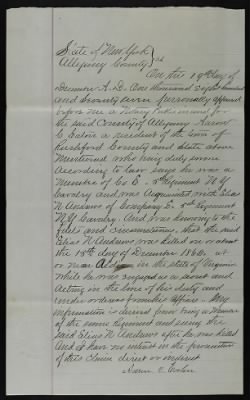 State of New York
Allegany County } ss
On the 19th day of
December A.D. One thousand Eight hundred
and Seventy seven personally appeared
before me a Notary Public in and for
the said County of Allegany Aaron
C. a resident of the town of
Rushford County and State above
Mentioned who being duly sworn
According to law says he was a
Member of Co E. Regiment N.Y.
Cavalry and was Acquainted with Elias
N Andrews of Company E. Regiment
N.Y. Cavalry. And was knowing to the
facts and Circumstances, that the said
Elias N Andrews was killed on or about
the 18th day of December 186 at
or near in the state of Virginia
while he was engaged as a scout and
Acting in the line of his duty and
under orders from his officers. My
information is derived from being a Member
of the same Regiment and seeing the
said Elias N Andrews after he was killed
And I have no interest in the prosecution
of this Claim direct or indirect
Aaron C.